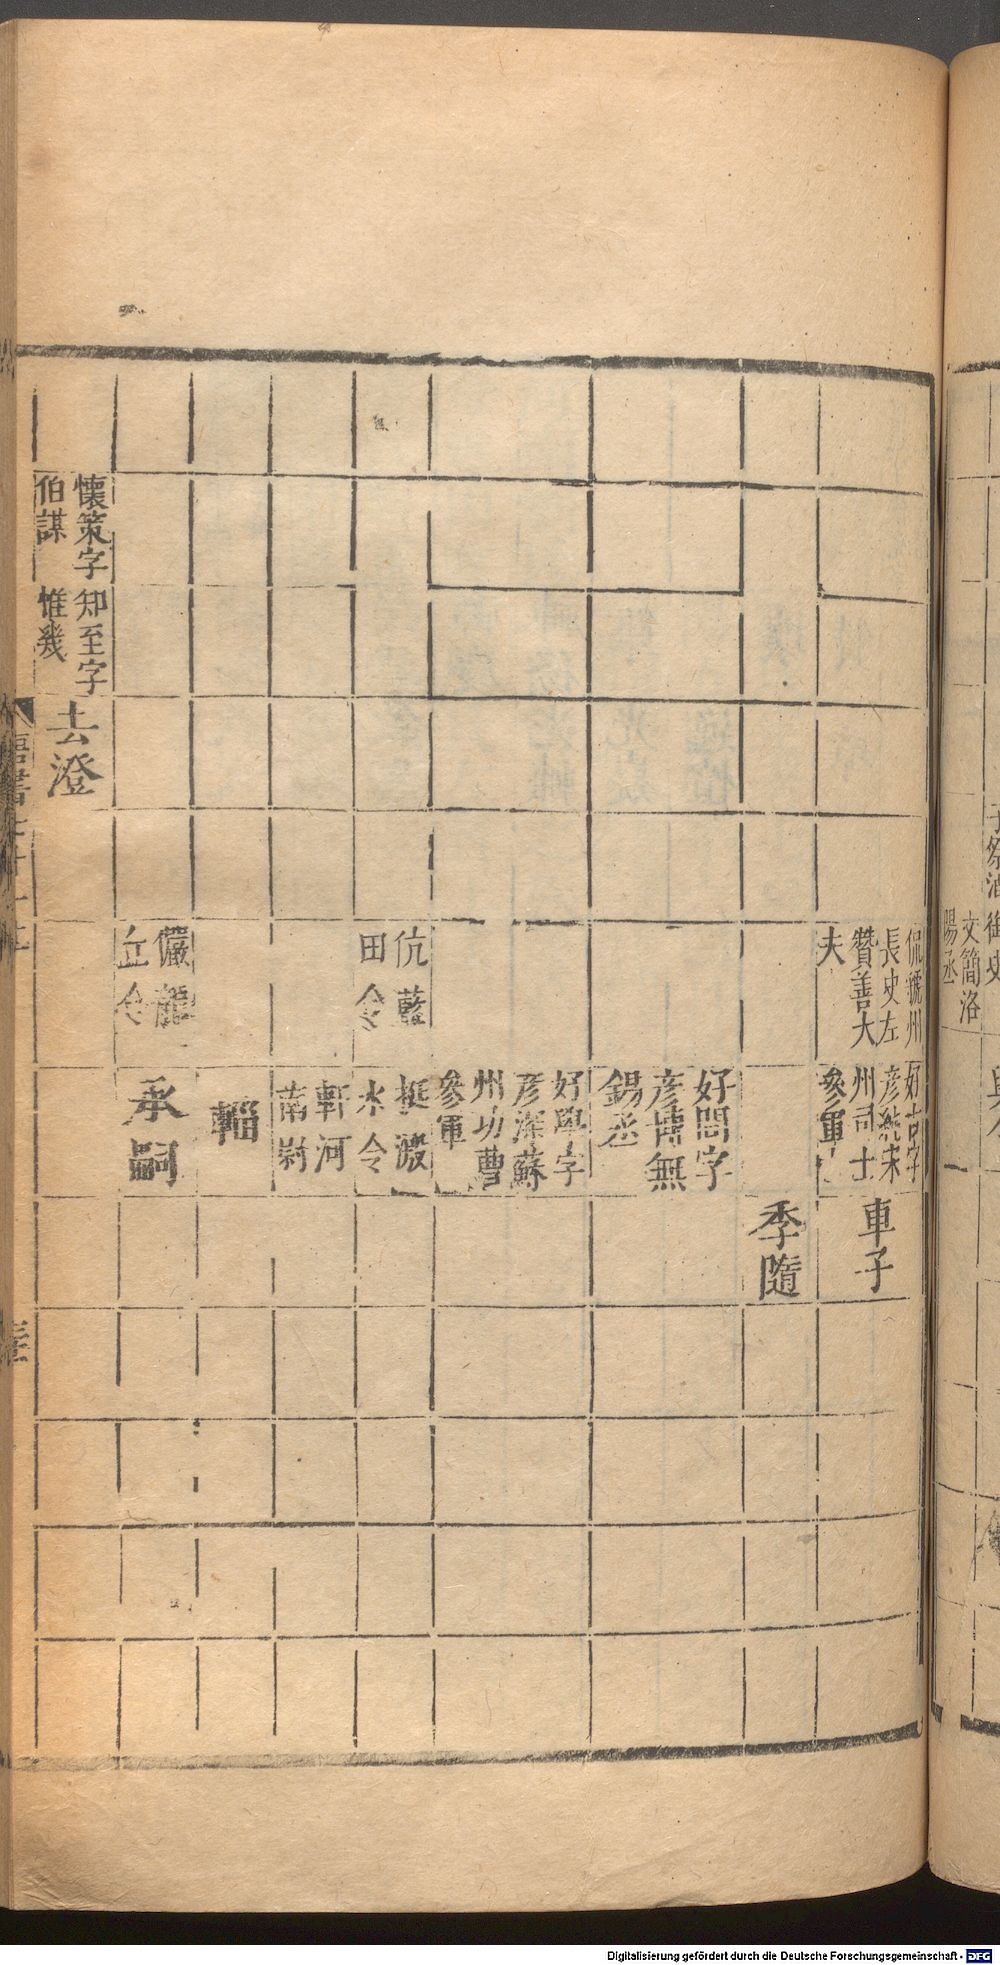 御史
文簡洛
陽丞
侃虢州
長史左
贊善大
夫
好古字
彥純宋
州司士
參軍
車子
季隨
好問字
彥博無
錫丞
好學字
彥深蘇
州功曹
參軍
伉藍
田令
挺溵
水令
軒河
南尉
輻
儼龍
丘令
承嗣
懷策字
伯謀
知至字
惟幾
去澄
Digitalisierung gefördert durch die Deutsche Forschungsgemeinschaft - DFG